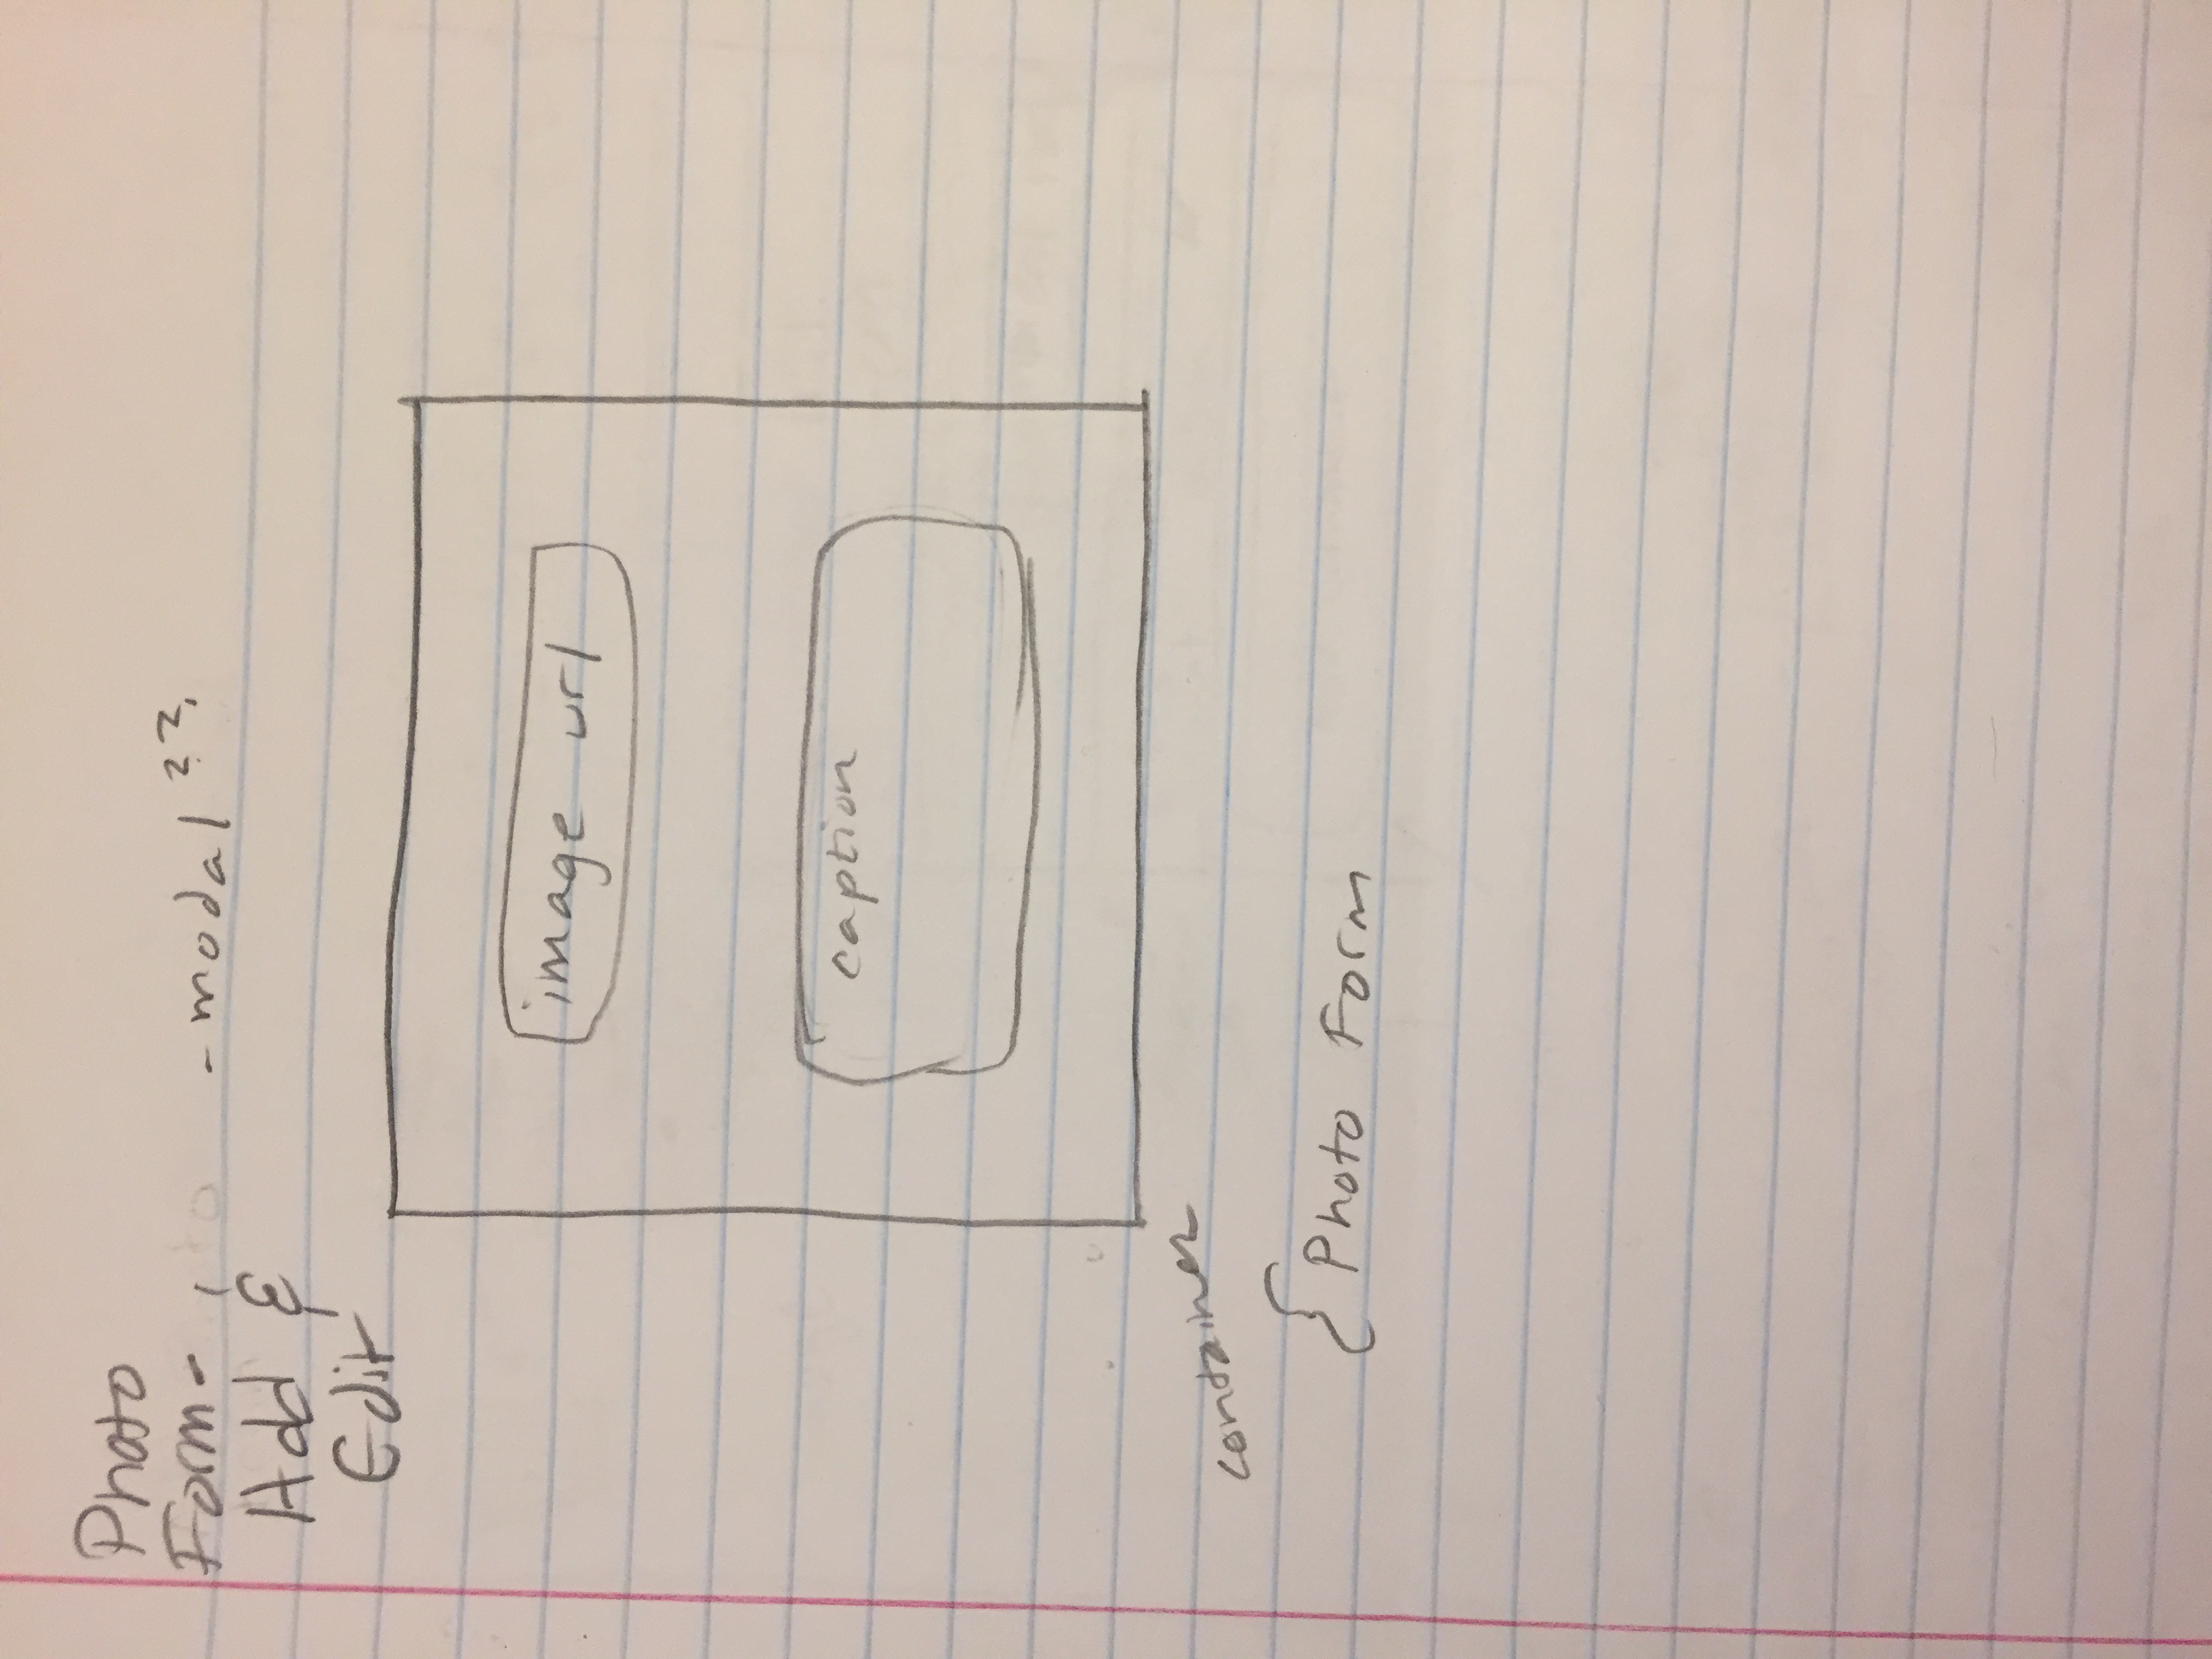 Photo
Form- - modal ??
Add &
Edit
image url
caption
container
{ Photo Form